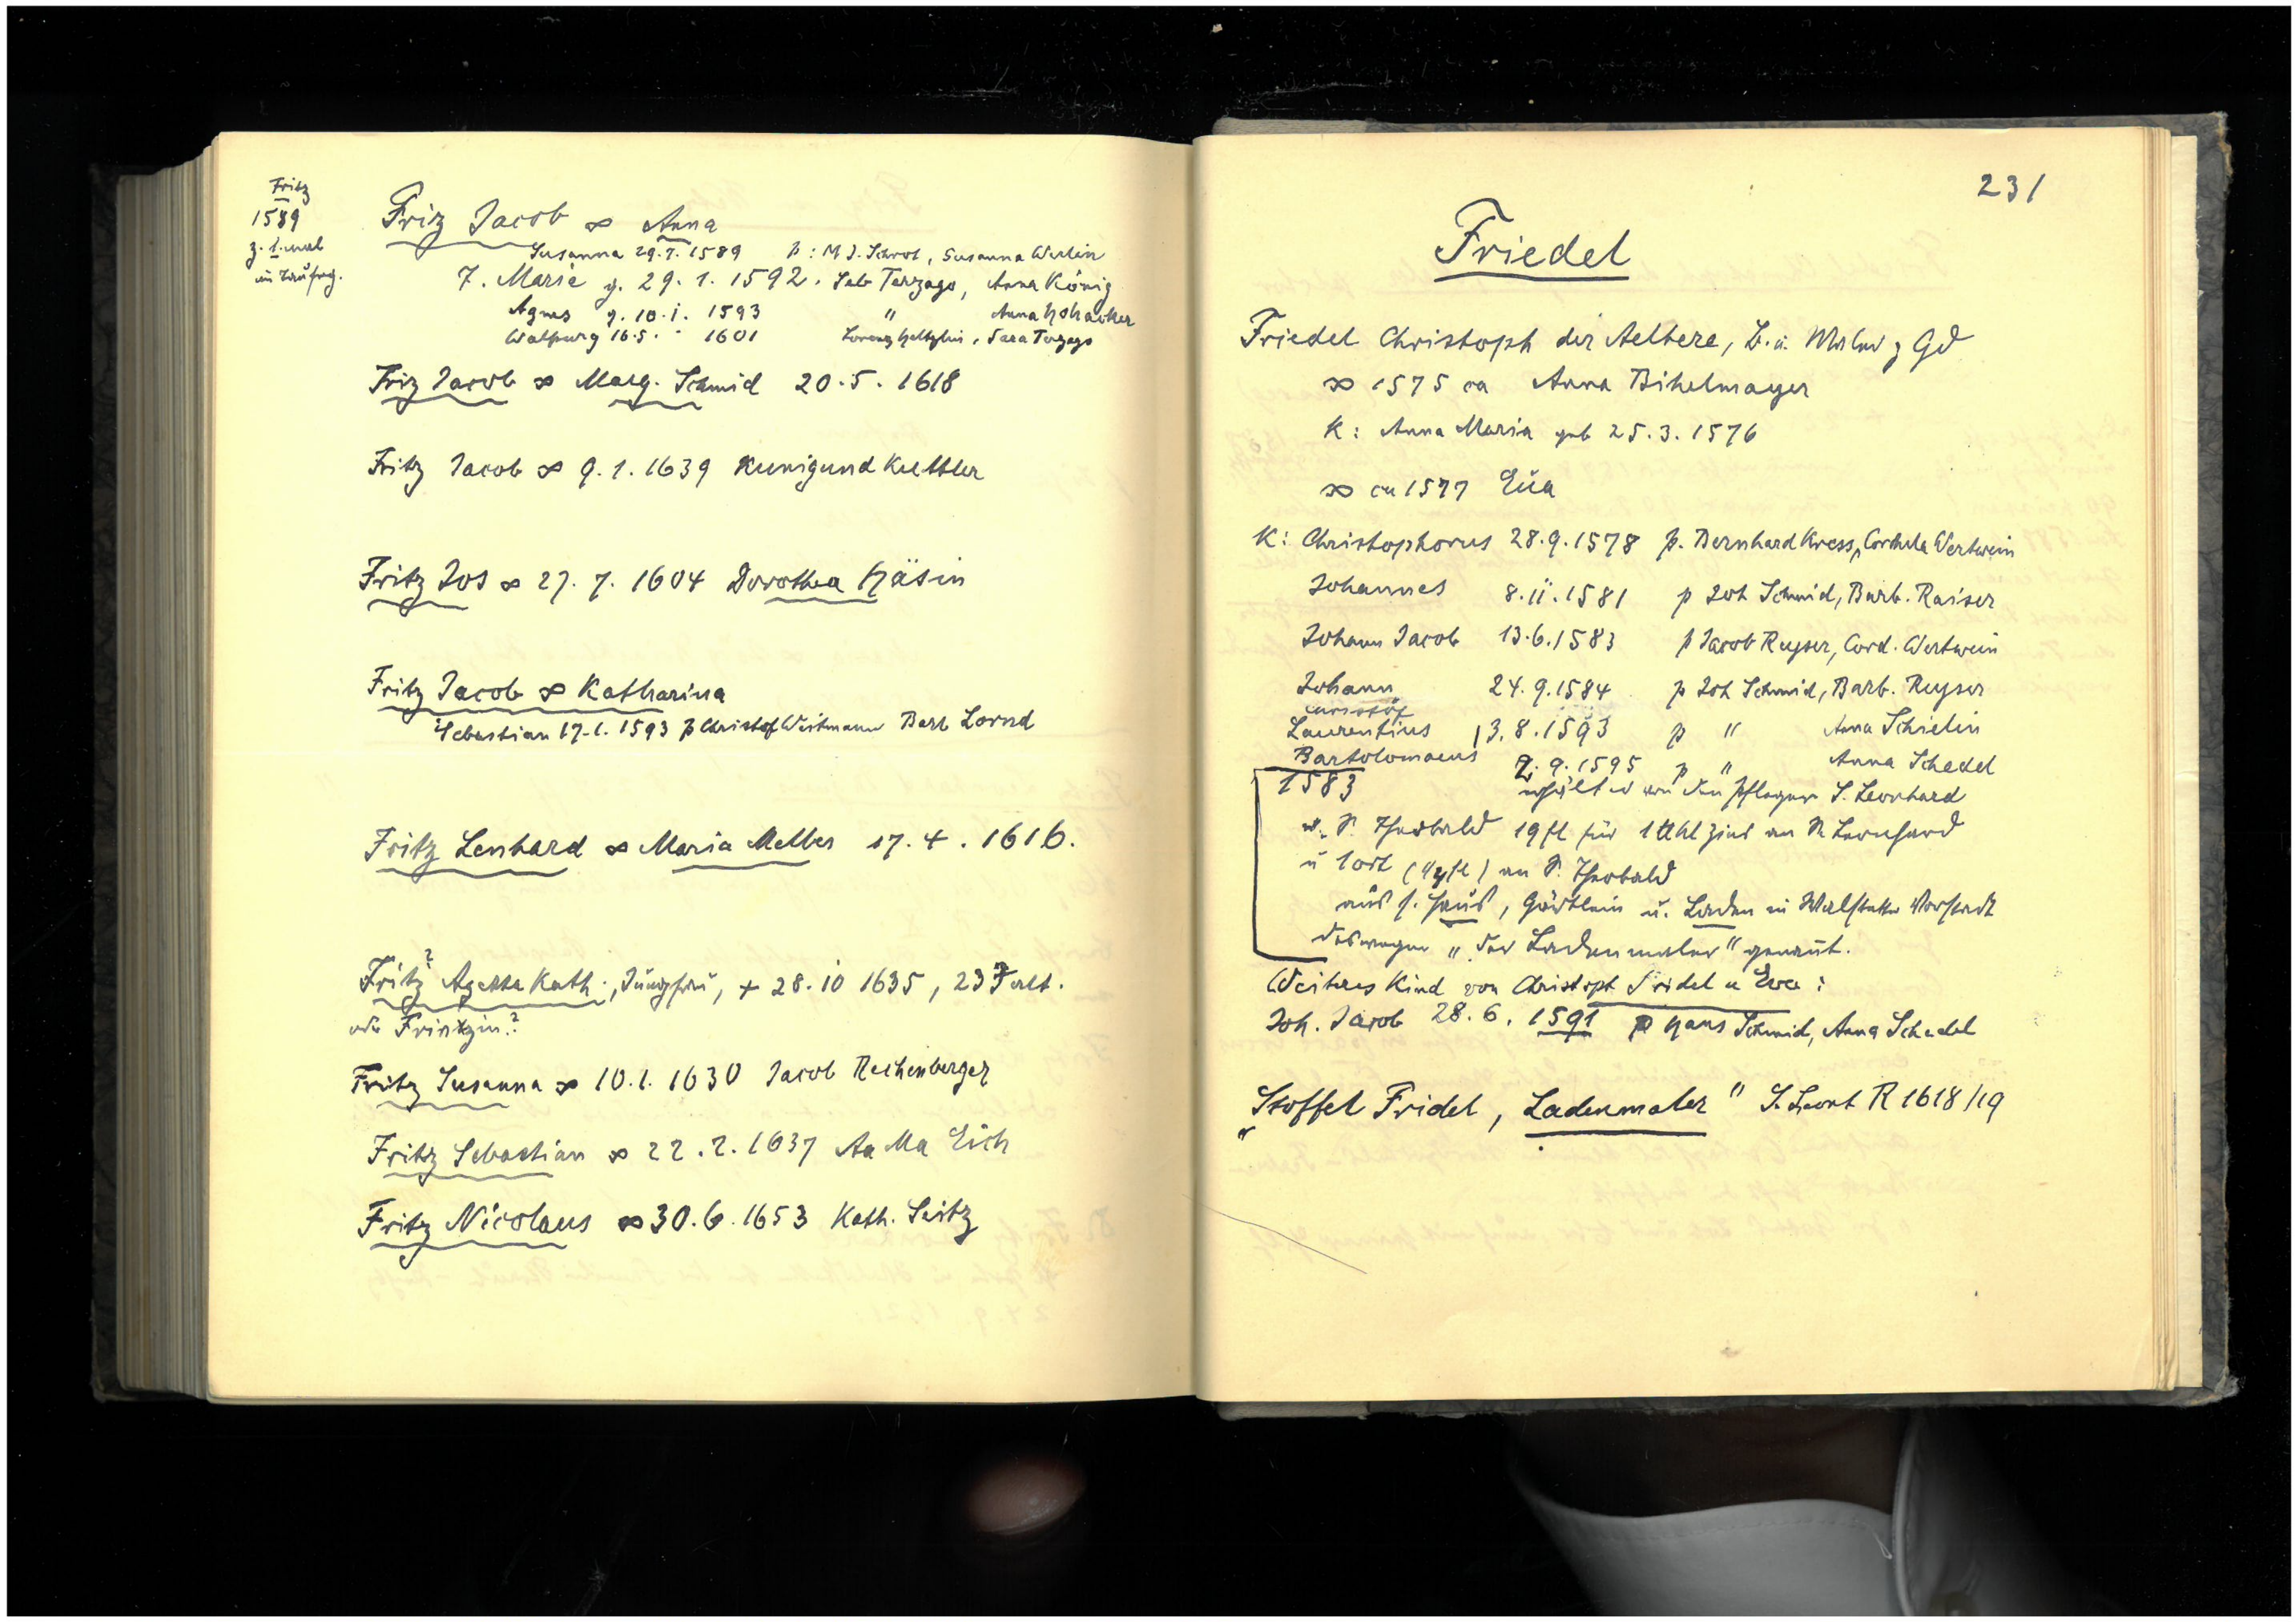 Fritz
1589
z. 1. mal
im Taufreg.
Friz Jacob ∞ Anna
Susanna 29.7.1589 p: M J. Schrot, Susanna Werlin
7. Marie g. 29.1.1592. Seb Terzago, Anna König
Agnes g. 10.i. 1593 " Anna
Walpurg 16.5. " 1601 Lorenz, Sara Terzago
Friz Jacob ∞ Marg. Schmid 20.5.1618
Fritz Jacob ∞ 9.1.1639 Kunigund Kuttler
Fritz Jos ∞ 27.7.1604 Dorothea Häsin
Fritz Jacob ∞ Katharina
Sebastian 17.1.1593 p Christof Weitmann Barb Lornd
Fritz Lenhard ∞ Maria Melber 17.4.1616.
Fritz? Agatha Kath., Jungfrau, + 28.10 1635, 23 J alt.
oder Frintzin?
Fritz Susanna ∞ 10.1.1630 Jacob Rechenberger
Fritz Sebastian ∞ 22.2.1637 Aa Ma Eich
Fritz Nicolaus ∞ 30.6.1653 Kath. Seitz
231
Friedel
Friedel Christoph der Aeltere, B. u. Maler z Gd
∞ 1575 ca Anna Bihelmayer
K: Anna Maria geb 25.3.1576
∞ ca 1577 Eua
K: Christophorus 28.9.1578 p. Bernhard Kress, Cordula Wertwein
Johannes 8.ii.1581 p Joh Schmid, Barb. Raiser
Johann Jacob 13.6.1583 p Jacob Reyser, Cord. Wertwein
Johann 24.9.1584 p Joh Schmid, Barb. Reyser
Laurentius 13.8.1593 p " Anna Schielin
Bartolomaeus 2.9.1595 p " Anna Schedel
1583 erhält er von den Pflegern S. Leonhard
u. S. Theobald 19 fl für 1 tt hl Zins an St Leonhard
u 1 ort (1/4 fl) an S. Theobald
aus s. Haus, Gärtlein u. Laden in Walstetter Vorstadt
deswegen "der Ladenmaler" genannt.
Weiteres Kind von Christoph Fridel u Eva:
Joh. Jacob 28.6.1591 p Hans Schmid, Anna Schedel
"Stoffel Fridel, Ladenmaler" S. Leonh R 1618/19